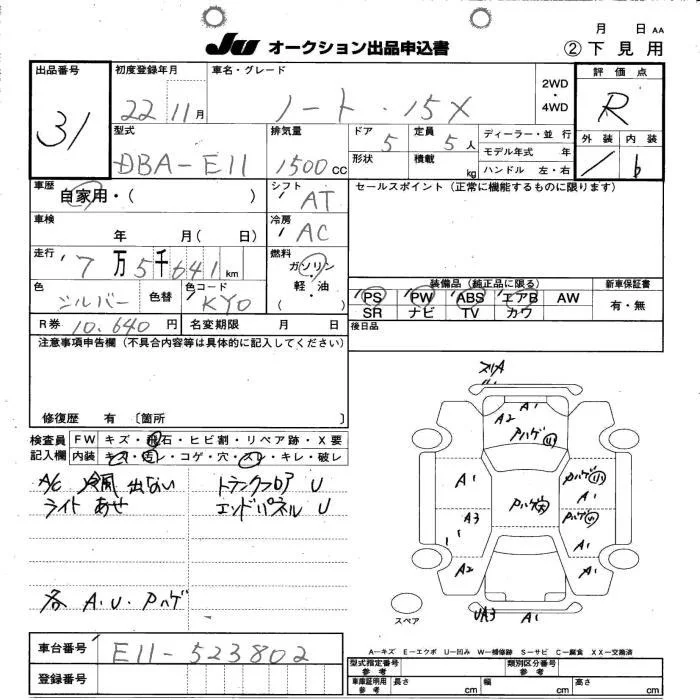 月 日 AA
JU オークション出品申込書 ②下見用
出品番号 初度登録年月 車名・グレード 2WD・4WD 評価点
31 22 11月 ノート・15X R
型式 排気量 ドア 定員 ディーラー・並行 外装 内装
DBA-E11 1500cc 5 5人 モデル年式 年
形状 積載 kg ハンドル 左・右 b
車歴 シフト セールスポイント(正常に機能するものに限ります)
自家用・( ) AT
車検 冷房
年 月(日) AC
走行 燃料
7万5千641km ガソリン
軽・油
( )
色 色替 色コード
シルバー KYO
装備品(純正品に限る) 新車保証書
PS PW ABS エアB AW 有・無
SR ナビ TV カワ
R券 10,640円 名変期限 月 日 後日品
注意事項申告欄(不具合内容等は具体的に記入してください)
修復歴 有〔箇所 〕
検査員記入欄 FW キズ・飛石・ヒビ割・リペア跡・X要
内装 キズ・汚レ・コゲ・穴・スレ・キレ・破レ
A/C 冷風出ない トランクフロア U
ライト あせ エンドパネル U
各 A.U.Pハゲ
スリA
A1
A2 Pハゲ
A1 Pハゲ大 Pハゲ
A1
A3 Pハゲ
A1
A2 A1
UA3 A1
スペア
A-キズ E-エクボ U-凹み W-補修跡 S-サビ C-腐食 XX-交換済
車台番号 E11-523802
登録番号
型式指定番号 参考 類別区分番号 参考
車庫証明用 参考 長さ cm 幅 cm 高さ cm